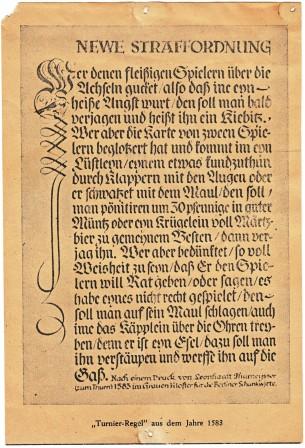 NEWE STRAFFORDNUNG
Wer denen fleißigen Spielern über die
Achseln gucket/also daß ine eyn
heiße Angst wurt/den soll man bald
verjagen und heißt ihn ein Kiebitz.
Wer aber die Karte von zween Spie-
lern beglotzet hat und kommt im eyn
Lüstleyn/eynem etwas kundzuthun
durch Klappern mit den Augen oder
er schwatzet mit dem Maul/den soll/
man pönitiren um 30 pfennige in guter
Müntz oder eyn Krügelein voll Märtz-
bier zu gemeynem Besten/dann ver-
jag ihn. Wer aber bedünket/so voll
Weisheit zu seyn/daß Er den Spie-
lern will Rat geben/oder sagen/es
habe eynes nicht recht gespielet/den-
soll man auf sein Maul schlagen/auch
ime das Käpplein über die Ohren trey-
ben/denn er ist eyn Esel/dazu soll man
ihn verstäupen und werffe ihn auf die
Gaß. Nach einem Druck von Leonhardt Thurneysser
(zum Thurm) 1583 im Grauen Kloster für die Berliner Schankwirte.
„Turnier-Regel" aus dem Jahre 1583